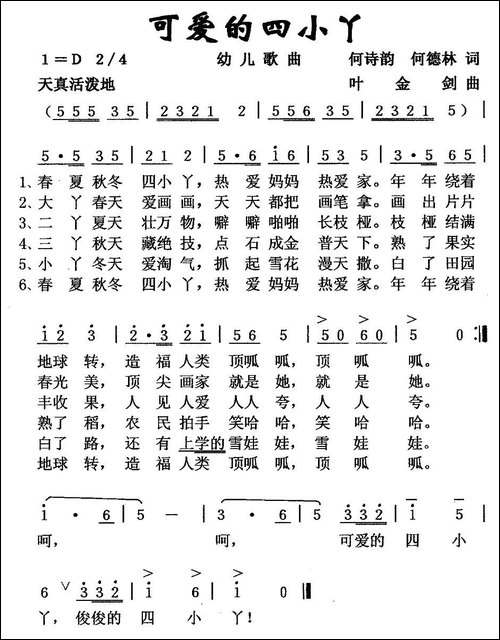 可爱的四小丫
1=D 2/4 幼儿歌曲 何诗韵 何德林 词
天真活泼地 叶金剑 曲
(555 35 | 2321 2 | 555 35 | 2321 2 | 2352 5)
5·5 35 | 21 2 | 5·6 i6 | 53 5 | 3·5 65 |
1、春 夏 秋冬 四小 丫，热 爱 妈妈 热爱 家。年 年 绕着
2、大 丫 春天 爱画 画，天 天 都把 画笔 拿。画 出 片片
3、二 丫 夏天 壮万 物，噼 噼 啪啪 长枝 桠。枝 桠 结满
4、三 丫 秋天 藏绝 技，点 石 成金 普天 下。熟 了 果实
5、小 丫 冬天 爱淘 气，抓 起 雪花 漫天 撒。白 了 田园
6、春 夏 秋冬 四小 丫，热 爱 妈妈 热爱 家。年 年 绕着
i2 3 | 2·3 2i | 56 5 | 50 60 | 5 0 :||
地球 转，造 福 人类 顶呱 呱，顶 呱 呱。
春光 美，顶 尖 画家 就是 她，就 是 她。
丰收 果，人 见 人爱 人人 夸，人 人 夸。
熟了 稻，农 民 拍手 笑哈 哈，笑 哈 哈。
白了 路，还 有 上学的 雪娃 娃，雪 娃 娃。
地球 转，造 福 人类 顶呱 呱，顶 呱 呱。
i · 6 | 5 - | 3 · 6 | 5 · 6 | 332 i | i 5 |
呵， 呵， 可爱的 四 小
6 ∨ 332 | i 6 | i 0 ||
丫，俊俊的 四 小 丫！